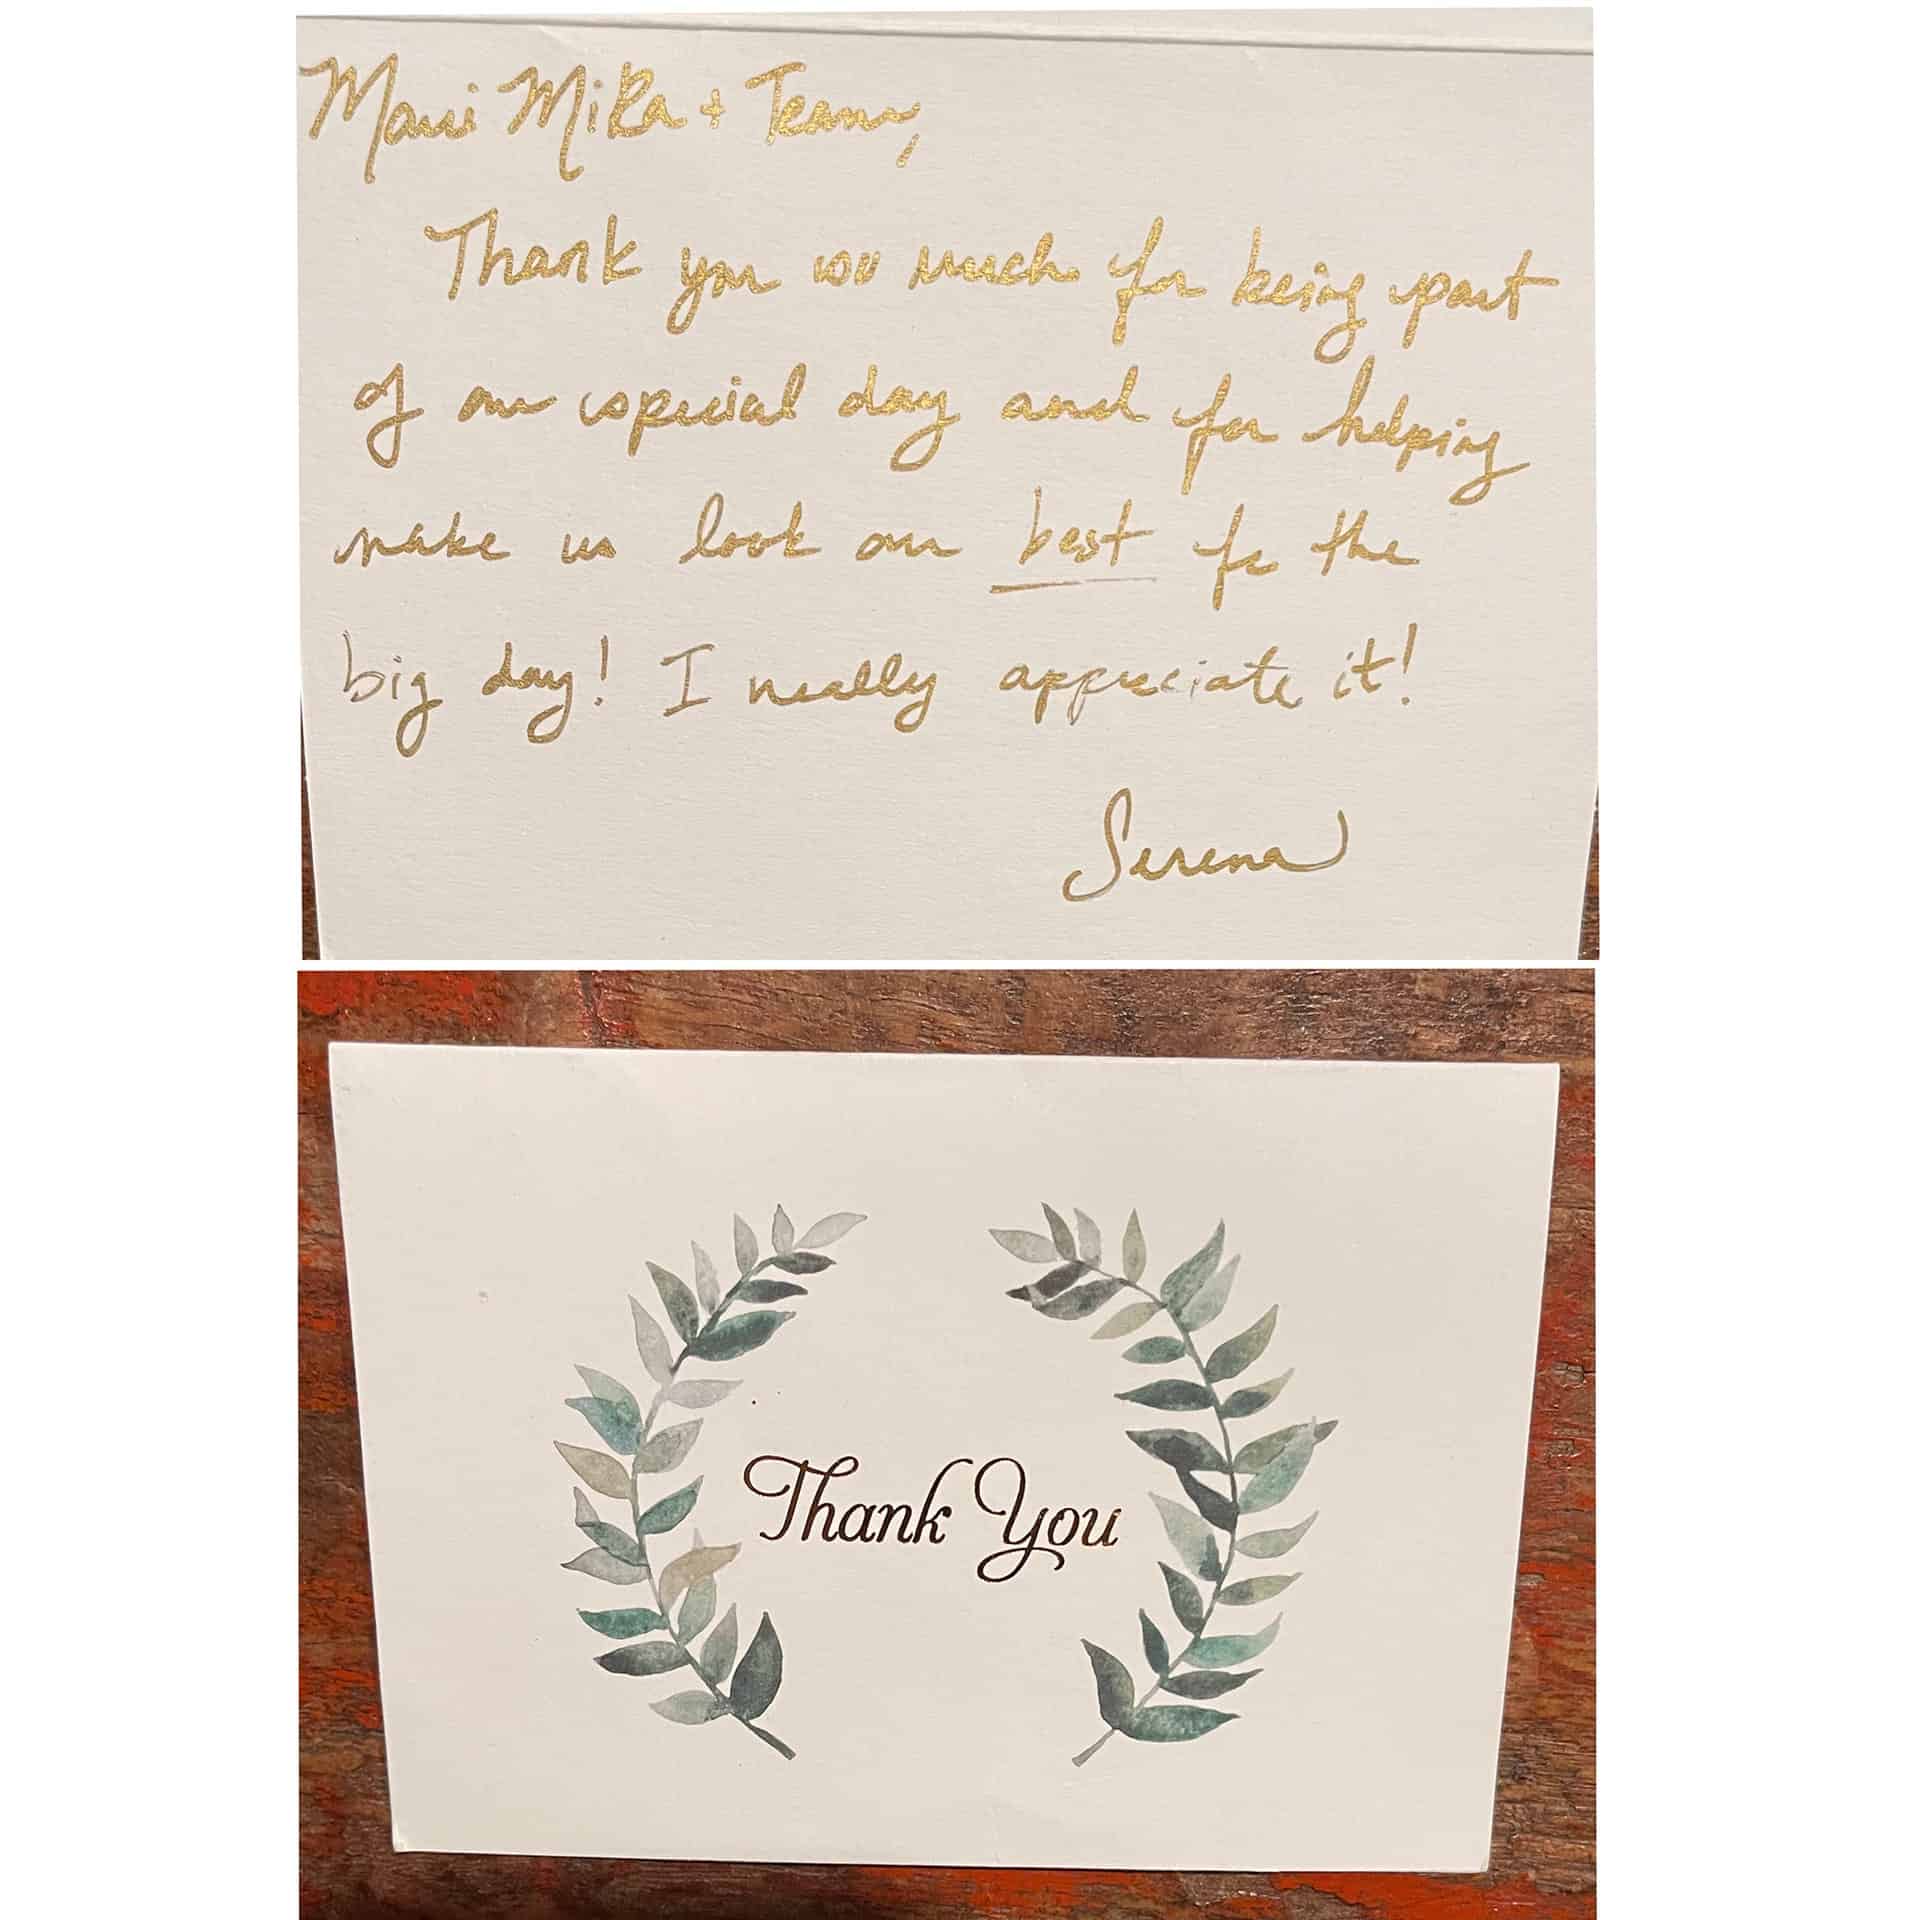 Maui Mika + Team,
Thank you so much for being part
of our special day and for helping
make us look our best for the
big day! I really appreciate it!
Serena
Thank You